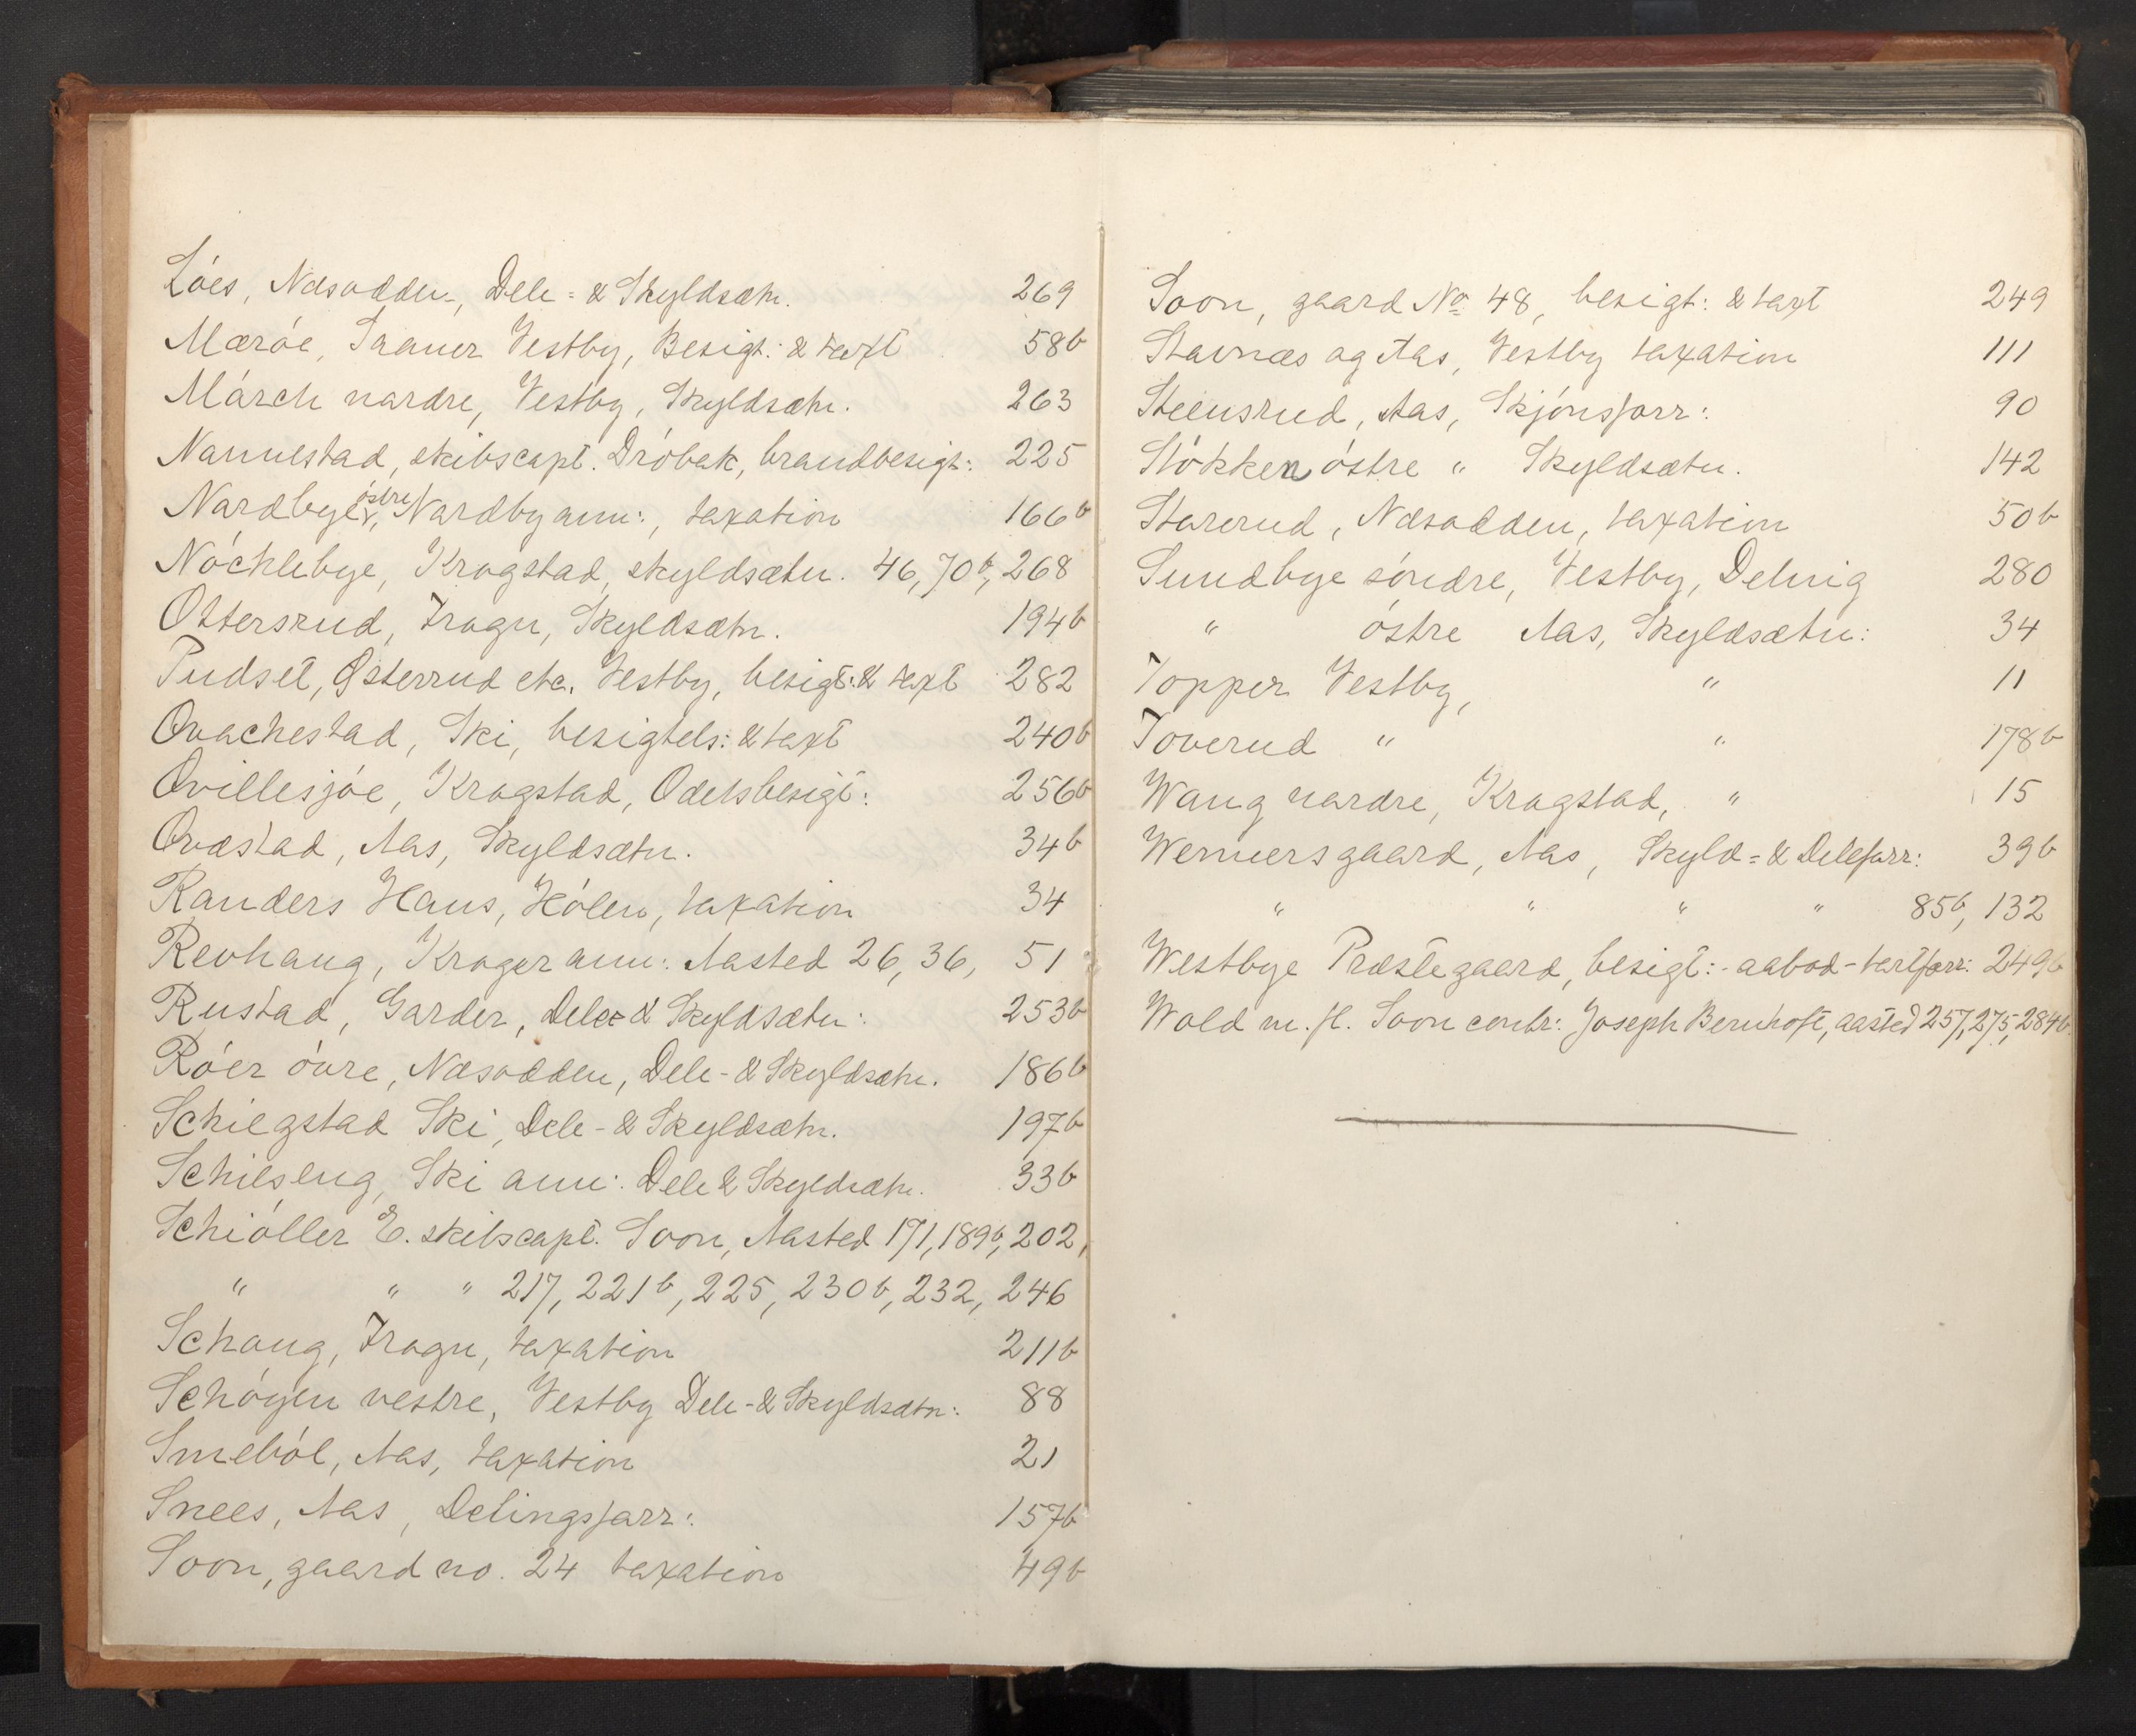 Lóes, Næsodden, Dele- & Skyldsætn. 269
Mæróe, Saaner Vestby, Besigt: & taxt 58b
Mórch nordre, Vestby, Skyldsætn. 263
Nannestad, skibscapt. Dróbak, brandbesigt: 225
Nordbye óstre, Nordby ann:, taxation 166b
Nóchlebye, Krogstad, skyldsætn. 46, 70b, 268
Ottersrud, Frogn, Skyldsætn. 194b
Pudset, Østerrud etc. Vestby, besigt: & taxt 282
Qvachestad, Ski, besigtels: & taxt 240b
Qvillesjóe, Krogstad, Odelsbesigt: 256b
Qvæstad, Aas, Skyldsætn. 34b
Randers Hans, Hólen, taxation 34
Revhaug, Kroger ann: Aasted 26, 36, 51
Rustad, Garder, Dele & Skyldsætn: 253b
Róer óvre, Næsodden, Dele- & Skyldsætn. 186b
Schiegstad Ski, Dele- & Skyldsætn. 197b
Schilseng, Ski ann: Dele & Skyldsætn. 33b
Schióller E. skibscapt. Soon, Aasted 171, 189b, 202,
" " " 217, 221b, 225, 230b, 232, 246
Schoug, Frogn, taxation 211b
Schógen vestre, Vestby Dele- & Skyldsætn: 88
Smeból, Aas, taxation 21
Snees, Aas, Delingsforr: 157b
Soon, gaard no. 24 taxation 49b
Soon, gaard No 48, besigt: & taxt 249
Stavnæs og Aas, Vestby taxation 111
Steensrud, Aas, Skjónsforr: 90
Stókken óstre " Skyldsætn. 142
Storerud, Næsodden, taxation 50b
Sundbye sóndre, Vestby, Delnig 280
" óstre Aas, Skyldsætn: 34
Topper Vestby, " 11
Toverud " " 178b
Wang nordre, Krogstad, " 15
Wernersgaard, Aas, Skyld- & Deleforr: 39b
" " " " 85b, 132
Westbye Præstegaard, besigt:- aabod- taxtforr: 249b
Wold m. fl. Soon contr: Joseph Bernhoft, aasted 257, 275, 284b